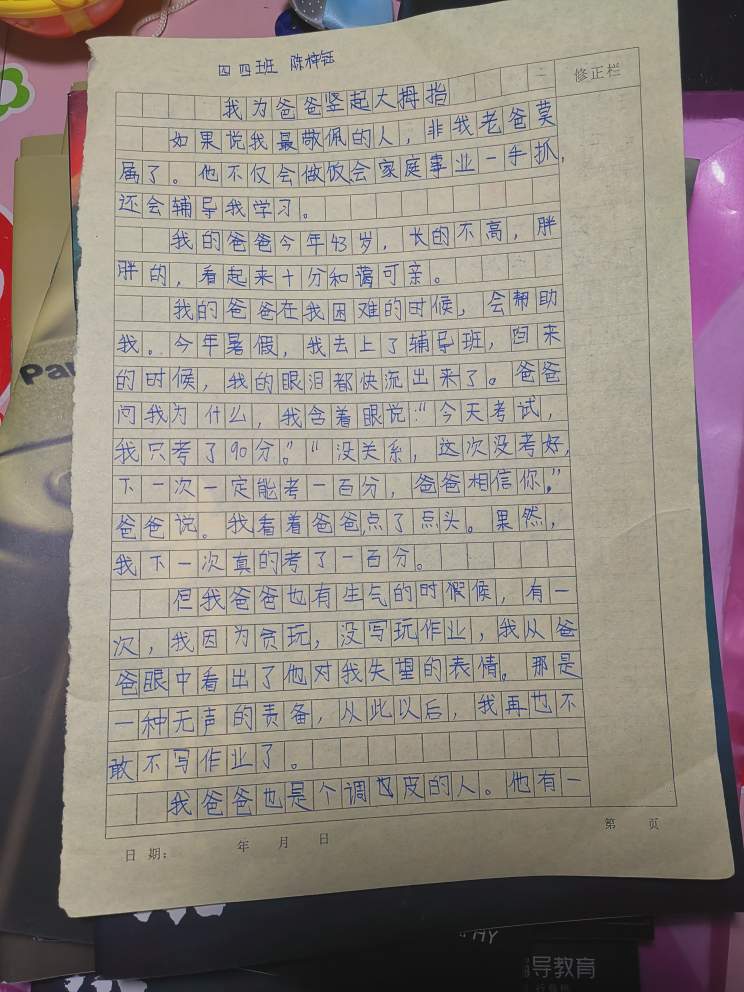 四四班 陈梓钰
修正栏
我为爸爸竖起大拇指
如果说我最敬佩的人，非我老爸莫
属了。他不仅会做饭会家庭事业一手抓，
还会辅导我学习。
我的爸爸今年43岁，长的不高，胖
胖的，看起来十分和蔼可亲。
我的爸爸在我困难的时候，会帮助
我。今年暑假，我去上了辅导班，回来
的时候，我的眼泪都快流出来了。爸爸
问我为什么，我含着眼说：“今天考试，
我只考了90分。”“没关系，这次没考好，
下一次一定能考一百分，爸爸相信你。”
爸爸说。我看着爸爸，点了点头。果然，
我下一次真的考了一百分。
但我爸爸也有生气的时候候，有一
次，我因为贪玩，没写玩作业，我从爸
爸眼中看出了他对我失望的表情。那是
一种无声的责备，从此以后，我再也不
敢不写作业了。
我爸爸也是个调皮的人。他有一
日期： 年 月 日 第 页
Pa
HY
导教育